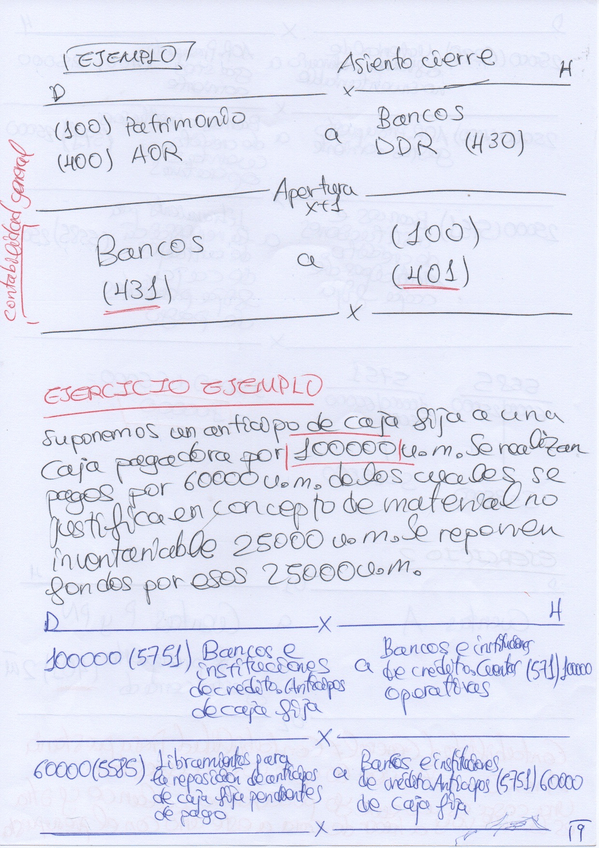 EJEMPLO
Asiento cierre
D
x
H
(100) Patrimonio
(400) AOR
a
Bancos
DDR (430)
Apertura
x+1
contabilidad general
Bancos
(431)
a
(100)
(401)
x
EJERCICIO EJEMPLO
Suponemos un anticipo de caja fija a una
caja pagadora por 100000 u.m. Se realizan
pagos por 60000 u.m. de los cuales se
justifica en concepto de material no
inventariable 25000 u.m. Se reponen
fondos por esos 25000 u.m.
D
x
H
100000 (5751) Bancos e
instituciones
de crédito. Anticipos
de caja fija
a
Bancos e instituciones
de crédito. Cuentas (571) 100000
operativas
x
60000 (5585) Libramientos para
la reposición de anticipos
de caja fija pendientes
de pago
a
Bancos e instituciones
de crédito Anticipos (5751) 60000
de caja fija
x
19